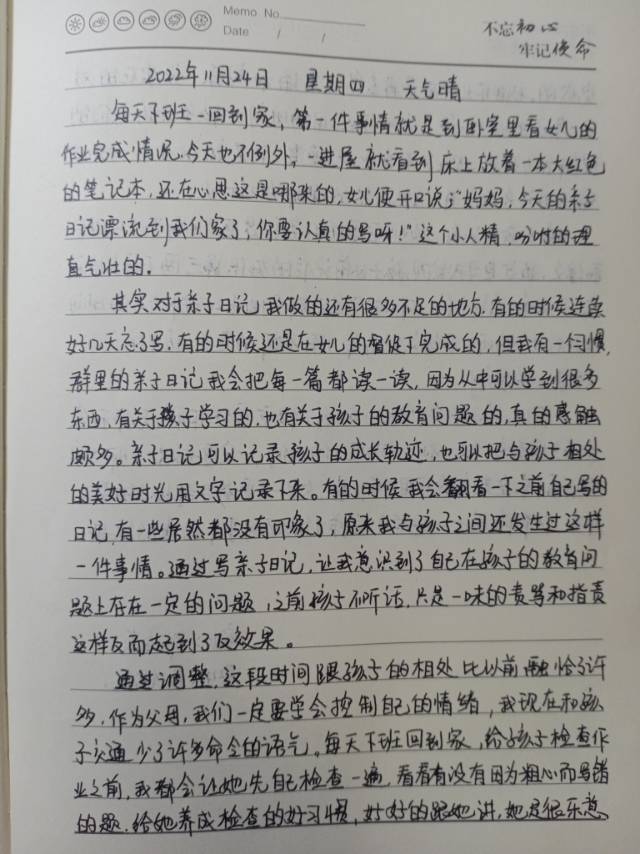 Memo No.
Date / /
不忘初心
牢记使命
2022年11月24日 星期四 天气晴
每天下班一回到家，第一件事情就是到卧室里看女儿的
作业完成情况，今天也不例外，一进屋就看到床上放着一本大红色
的笔记本，还在心思这是哪来的，女儿便开口说："妈妈，今天的亲子
日记漂流到我们家了，你要认真的写呀！"这个小人精，吩咐的理
直气壮的。
其实对于亲子日记，我做的还有很多不足的地方，有的时候连续
好几天忘了写，有的时候还是在女儿的督促下完成的，但我有一个习惯，
群里的亲子日记我会把每一篇都读一读，因为从中可以学到很多
东西，有关于孩子学习的，也有关于孩子的教育问题的，真的感触
颇多。亲子日记可以记录孩子的成长轨迹，也可以把与孩子相处
的美好时光用文字记录下来。有的时候我会翻看一下之前自己写的
日记，有一些居然都没有印象了，原来我与孩子之间还发生过这样
一件事情。通过写亲子日记，让我意识到了自己在孩子的教育问
题上存在一定的问题，之前孩子不听话，只是一味的责骂和指责
这样反而起到了反效果。
通过调整，这段时间跟孩子的相处比以前融恰了许
多，作为父母，我们一定要学会控制自己的情绪，我现在和孩
子交通少了许多命令的语气。每天下班回到家，给孩子检查作
业之前，我都会让她先自己检查一遍，看看有没有因为粗心而写错
的题，给她养成检查的好习惯，好好的跟她讲，她是很乐意